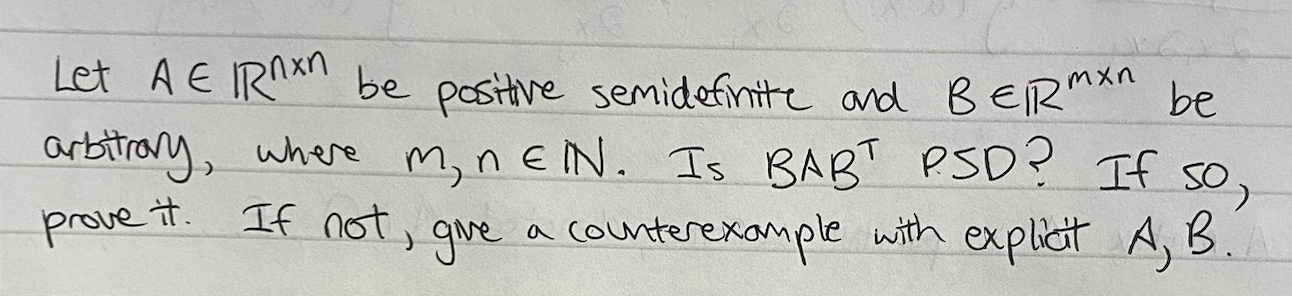 Let A ∈ ℝⁿˣⁿ be positive semidefinite and B ∈ ℝᵐˣⁿ be
arbitrary, where m, n ∈ ℕ. Is BABᵀ PSD? If so,
prove it. If not, give a counterexample with explicit A, B.